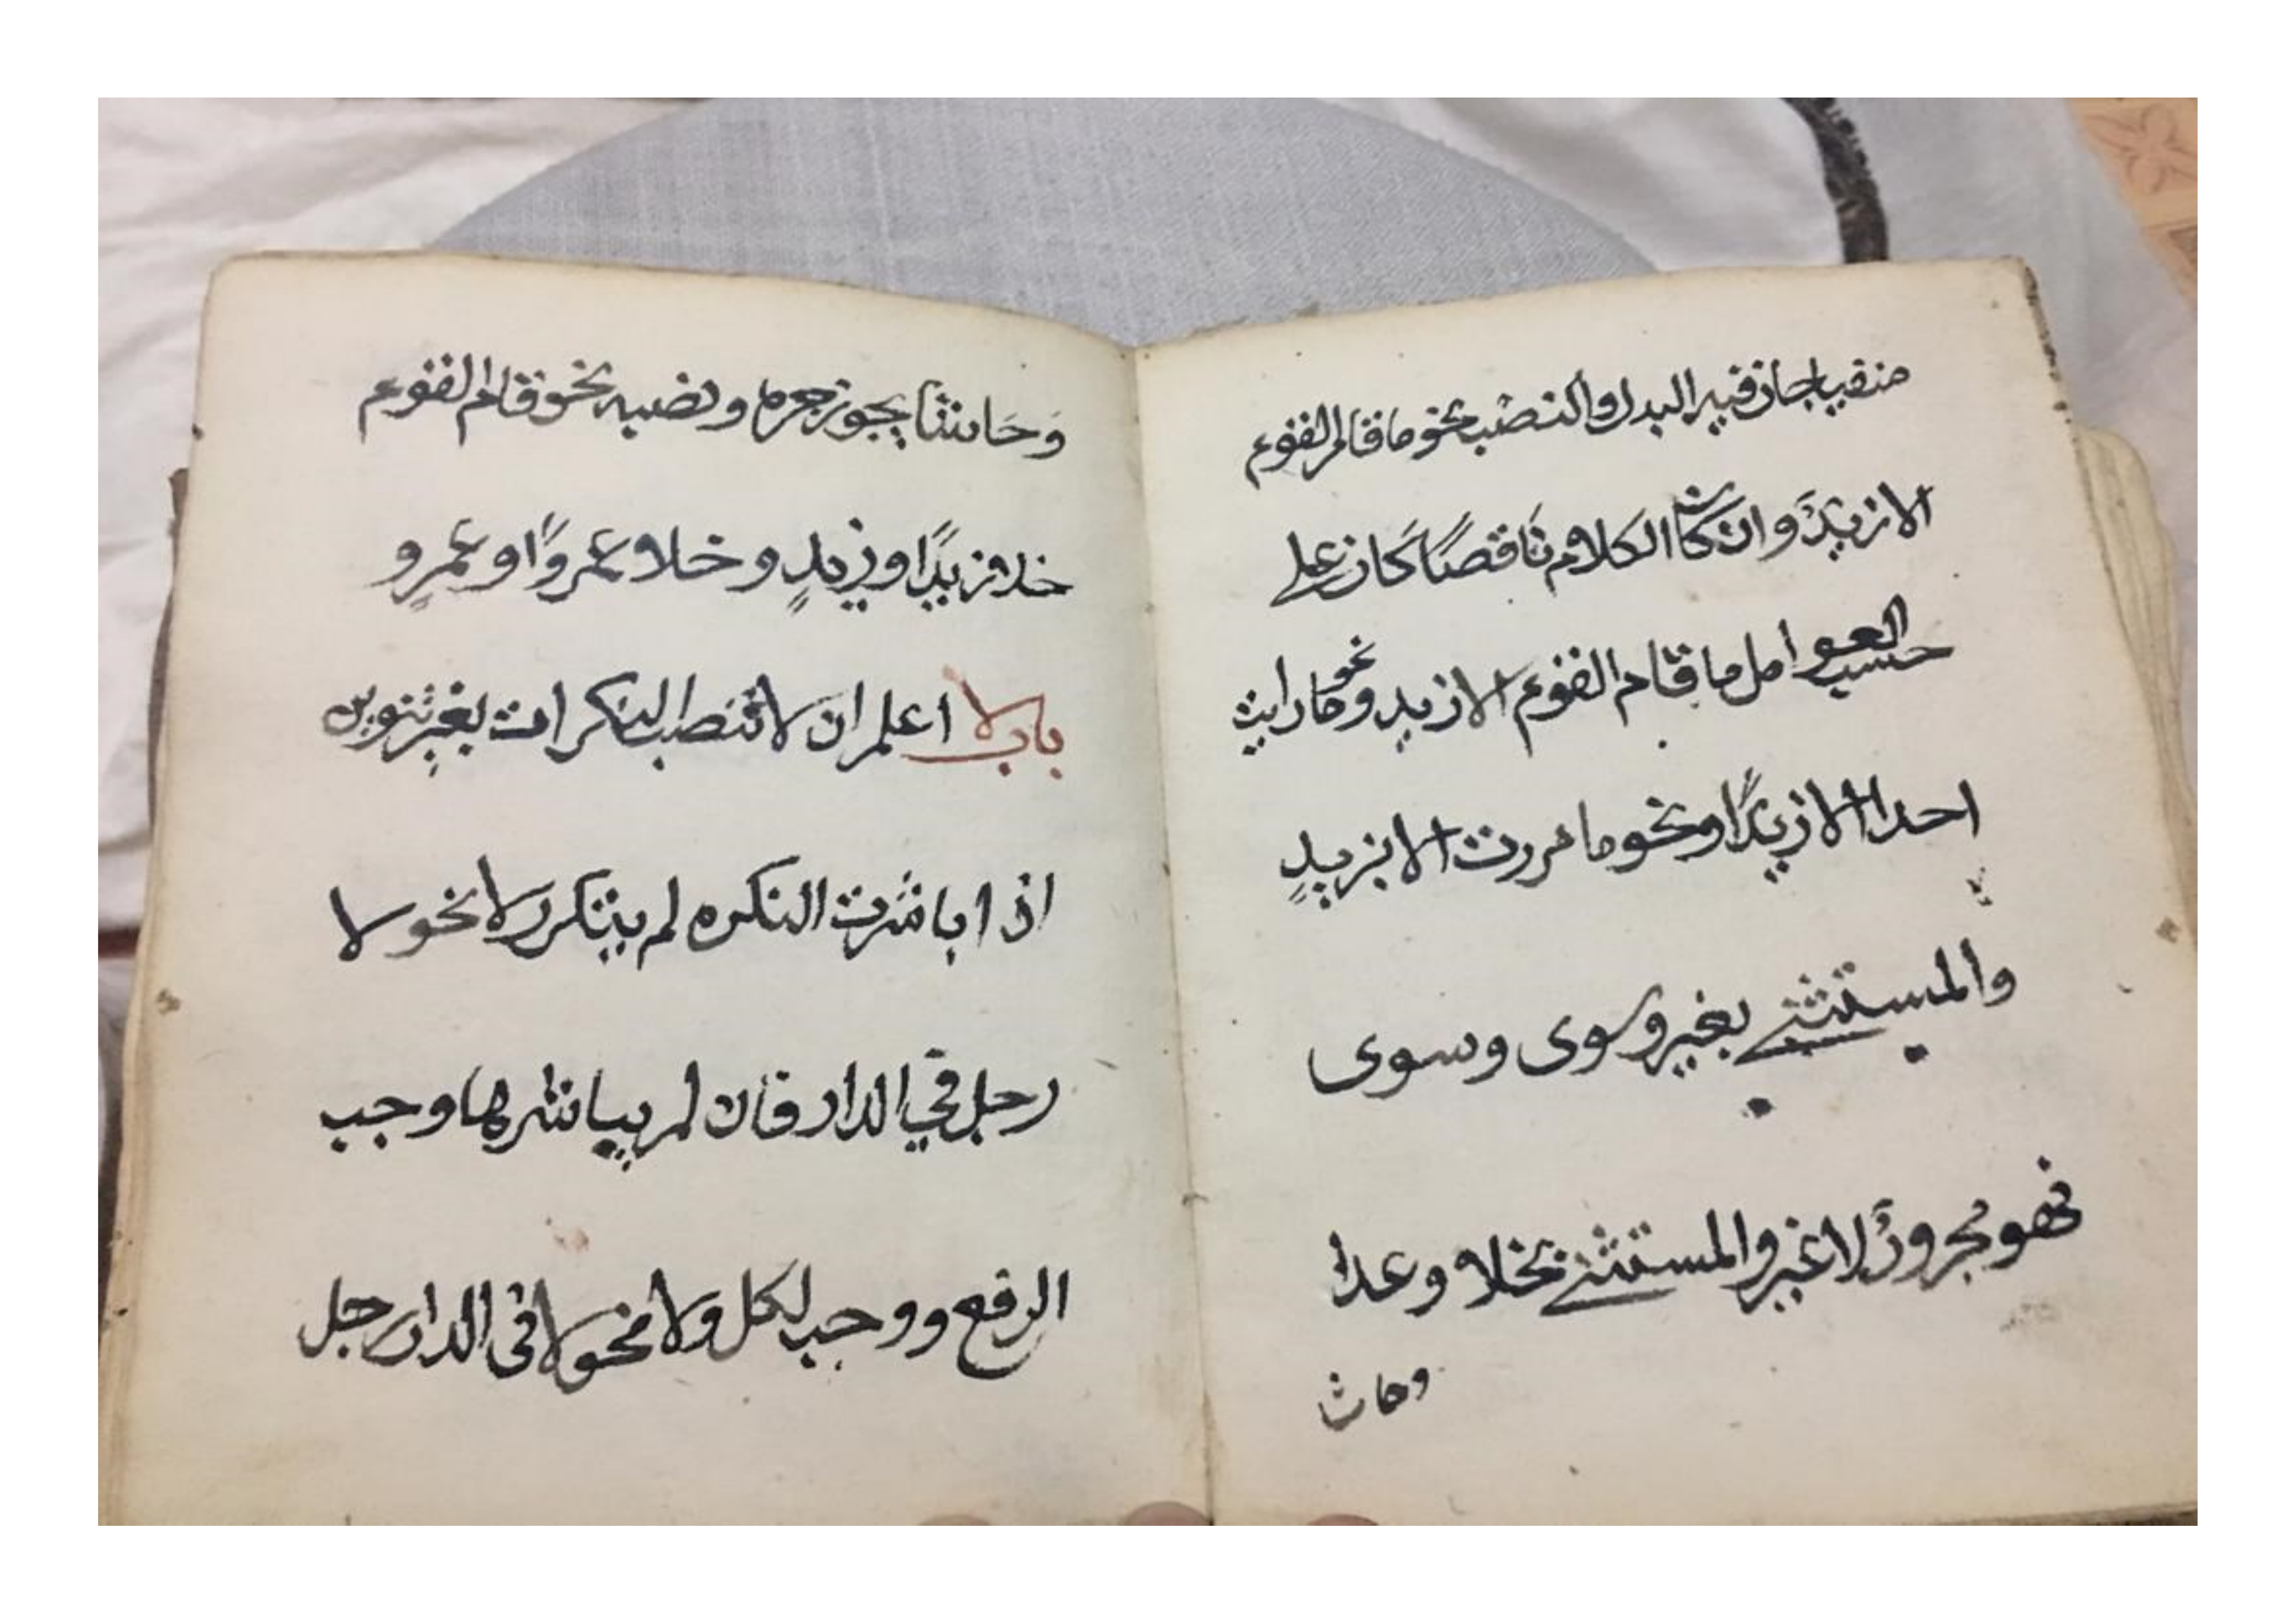 منفيا جاز فيه البدل والنصب نحو ما قام القوم
الا زيدٌ وان كان الكلام ناقصًا كان على
حسب العوامل ما قام القوم الا زيد ونحو ما رايت
احدا الا زيدًا ونحو ما مررت الا بزيدٍ
والمستثنى بغير وسوى وسوى
فهو مجرورٌ لا غير والمستثنى بخلا وعدا
وحاش
وَحَاشا يجوز جره ونصبه نحو قام القوم
خلا زيدًا وزيدٍ وخلا عمروًا او عمرٍو
باب لا اعلم ان لا تنصب النكرات بغير تنوين
اذا باشرت النكره لم يتكرر لا نحو لا
رجل في الدار فان لم يباشرها وجب
الرفع ووجب لكل ولا نحو لا في الدار رجل